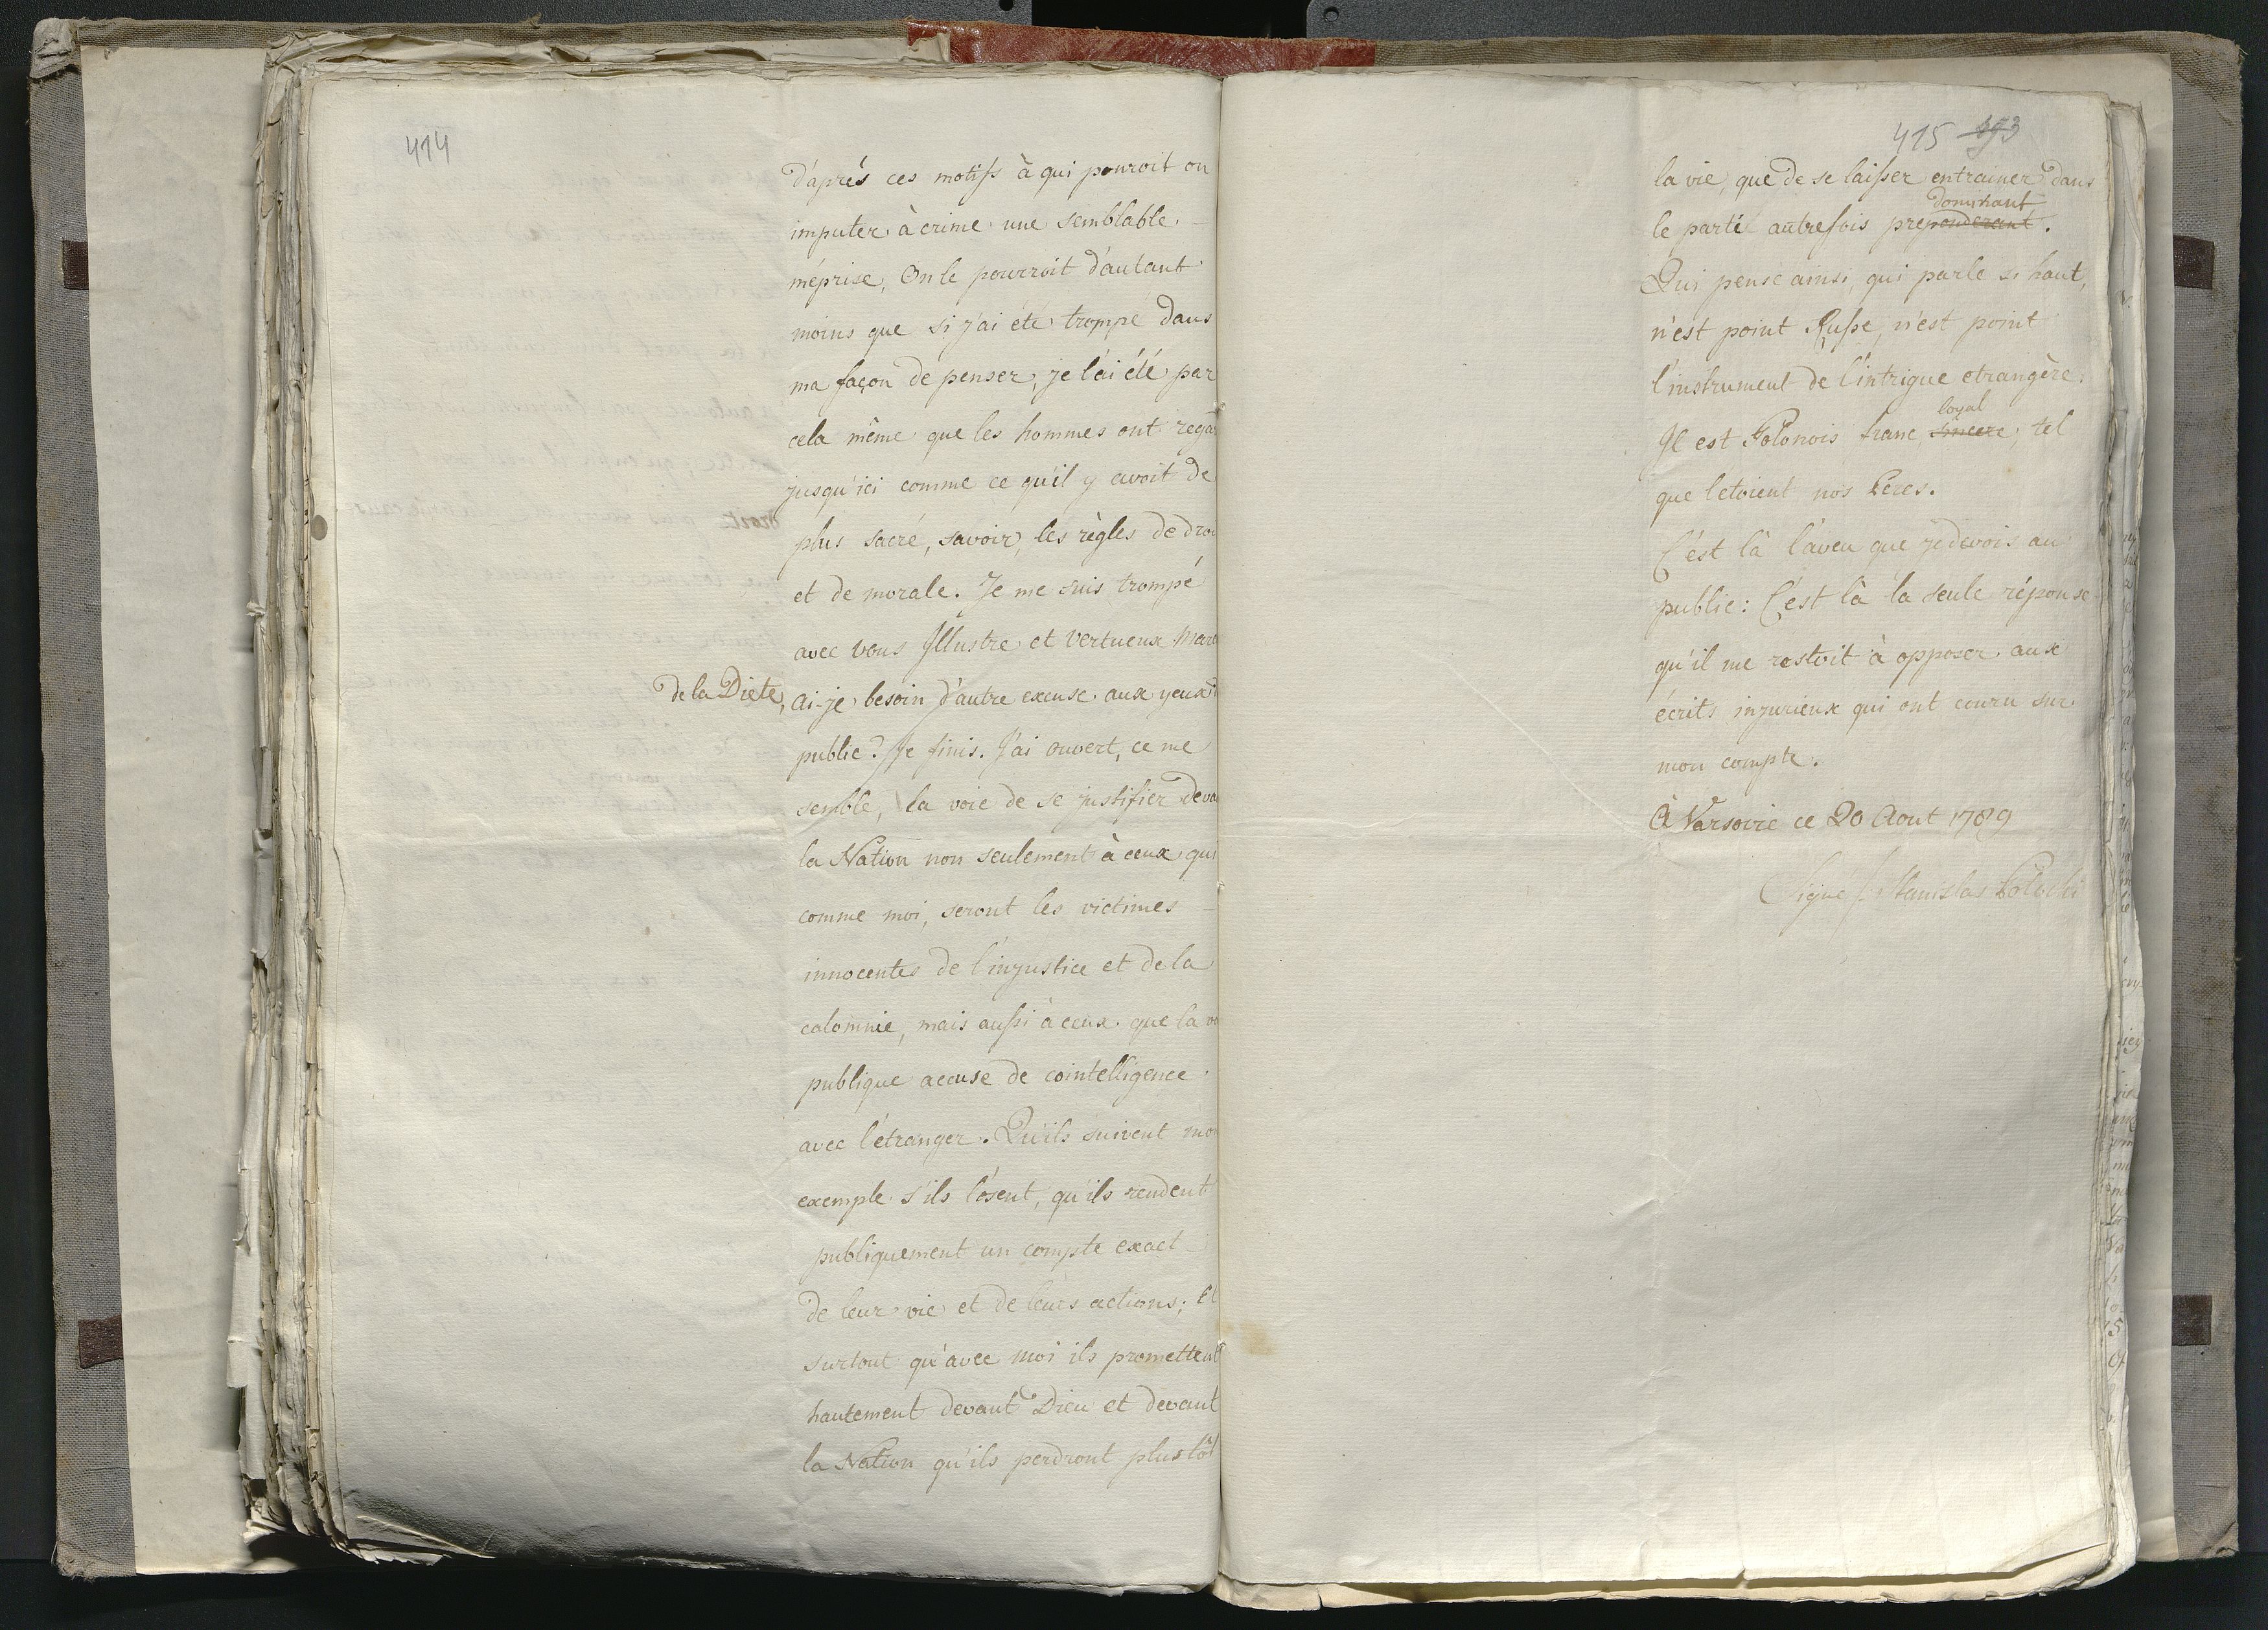 414
d'aprés ces motifs à qui pouroit on
imputer à crime une semblable
méprise, On le pourroit d'autant
moins que si j'ai été trompé dans
ma façon de penser, je l'ai été par
cela même que les hommes ont regar
jusqu'ici comme ce qu'il y avoit de
plus sacré, savoir, les règles de droi
et de morale. Je me suis trompé
avec vous Illustre et vertueux Mare
de la Diete, ai-je besoin d'autre excuse aux yeux
public? Je finis. J'ai ouvert, ce me
semble, la voie de se justifier deva
la Nation non seulement à ceux qui
comme moi, seront les victimes
innocentes de l'injustice et de la
calomnie, mais aussi à ceux que la vo
publique accuse de cointelligence
avec l'étranger. Qu'ils suivent mo
exemple s'ils l'osent, qu'ils rendent
publiquement un compte exact
de leur vie et de leurs actions; Et
surtout qu'avec moi ils promettent
hautement devant Dieu et devant
la Nation qu'ils perdront plus tôt
415
la vie, que de se laisser entrainer dans
dominant
le parti autrefois preponderant.
Qui pense ainsi, qui parle si haut,
n'est point Russe, n'est point
l'instrument de l'intrigue etrangère.
loyal
Il est Polonois franc, sincere, tel
que l'etoient nos Peres.
C'est là l'aveu que je devois au
public: C'est là la seule réponse
qu'il me restoit à opposer aux
écrits injurieux qui ont couru sur
mon compte.
à Varsovie ce 20 Aout 1789
Signé Stanislas Potocki